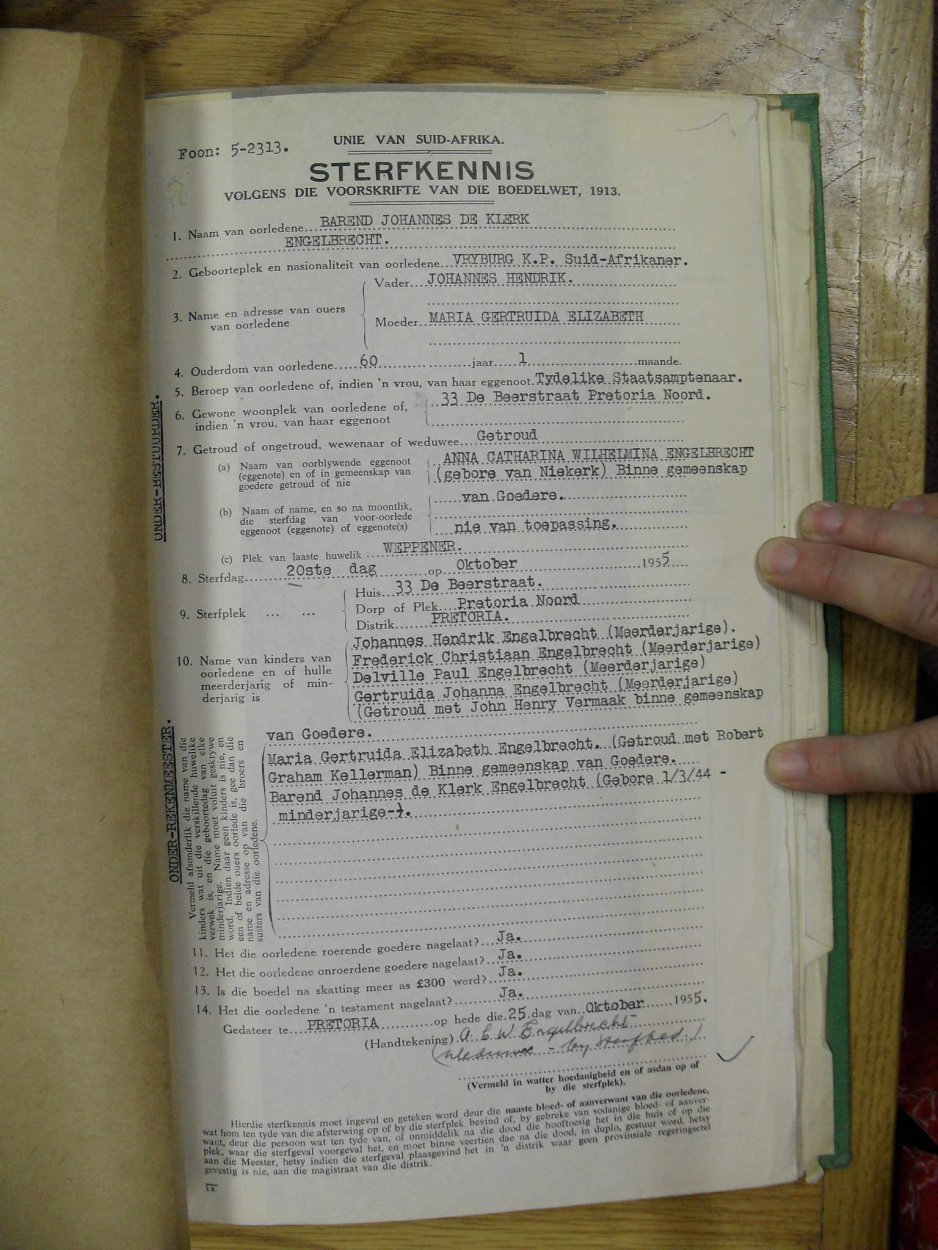 Foon: 5-2313.
UNIE VAN SUID-AFRIKA.
STERFKENNIS
VOLGENS DIE VOORSKRIFTE VAN DIE BOEDELWET, 1913.
1. Naam van oorledene BAREND JOHANNES DE KLERK
ENGELBRECHT.
2. Geboorteplek en nasionaliteit van oorledene VRYBURG K.P. Suid-Afrikaner.
3. Name en adresse van ouers van oorledene
Vader JOHANNES HENDRIK.
Moeder MARIA GERTRUIDA ELIZABETH
4. Ouderdom van oorledene 60 jaar 1 maande.
5. Beroep van oorledene of, indien 'n vrou, van haar eggenoot Tydelike Staatsamptenaar.
6. Gewone woonplek van oorledene of, indien 'n vrou, van haar eggenoot
33 De Beerstraat Pretoria Noord.
7. Getroud of ongetroud, wewenaar of weduwee Getroud
(a) Naam van oorblywende eggenoot (eggenote) en of in gemeenskap van goedere getroud of nie
ANNA CATHARINA WILHELMINA ENGELBRECHT
(gebore van Niekerk) Binne gemeenskap
van Goedere.
(b) Naam of name, en so na moontlik, die sterfdag van voor-oorlede eggenoot (eggenote) of eggenote(s)
nie van toepassing.
(c) Plek van laaste huwelik WEPPENER.
8. Sterfdag 20ste dag op Oktober 1955
9. Sterfplek
Huis 33 De Beerstraat.
Dorp of Plek Pretoria Noord
Distrik PRETORIA.
10. Name van kinders van oorledene en of hulle meerderjarig of minderjarig is
Johannes Hendrik Engelbrecht (Meerderjarige).
Frederick Christiaan Engelbrecht (Meerderjarige)
Delville Paul Engelbrecht (Meerderjarige)
Gertruida Johanna Engelbrecht (Meerderjarige)
(Getroud met John Henry Vermaak binne gemeenskap
van Goedere.
Maria Gertruida Elizabeth Engelbrecht. (Getroud met Robert
Graham Kellerman) Binne gemeenskap van Goedere.
Barend Johannes de Klerk Engelbrecht (Gebore 1/3/44 -
minderjarige-).
ONDER-BESTUURDER.
ONDER-REKENMEESTER.
Vermeld afsonderlik die name van die
kinders wat uit die verskillende huwelike
verwek is, en die geboortedag van elke
minderjarige. Name moet voluit geskrywe
word. Indien daar geen kinders is nie, en
een of beide ouers oorlede is, gee dan die
name en adresse op van die broers en
susters van die oorledene.
11. Het die oorledene roerende goedere nagelaat? Ja.
12. Het die oorledene onroerdene goedere nagelaat? Ja.
13. Is die boedel na skatting meer as £300 werd? Ja.
14. Het die oorledene 'n testament nagelaat? Ja.
Gedateer te PRETORIA op hede die 25 dag van Oktober 1955.
(Handtekening) A C W Engelbrecht
(Weduwee - by sterfbed)
(Vermeld in watter hoedanigheid en of asdan op of
by die sterfplek).
Hierdie sterfkennis moet ingevul en geteken word deur die naaste bloed- of aanverwant van die oorledene,
wat hom ten tyde van die afsterwing op of by die sterfplek bevind of, by gebreke van sodanige bloed- of aanver-
want, deur die persoon wat ten tyde van, of onmiddelik na die dood die hooftoesig het in die huis of op die
plek, waar die sterfgeval voorgeval het, en moet binne veertien dae na die dood, in duplo, gestuur word, hetsy
aan die Meester, hetsy indien die sterfgeval plaasgevind het in 'n distrik waar geen provinsiale regeringsetel
gevestig is nie, aan die magistraat van die distrik.